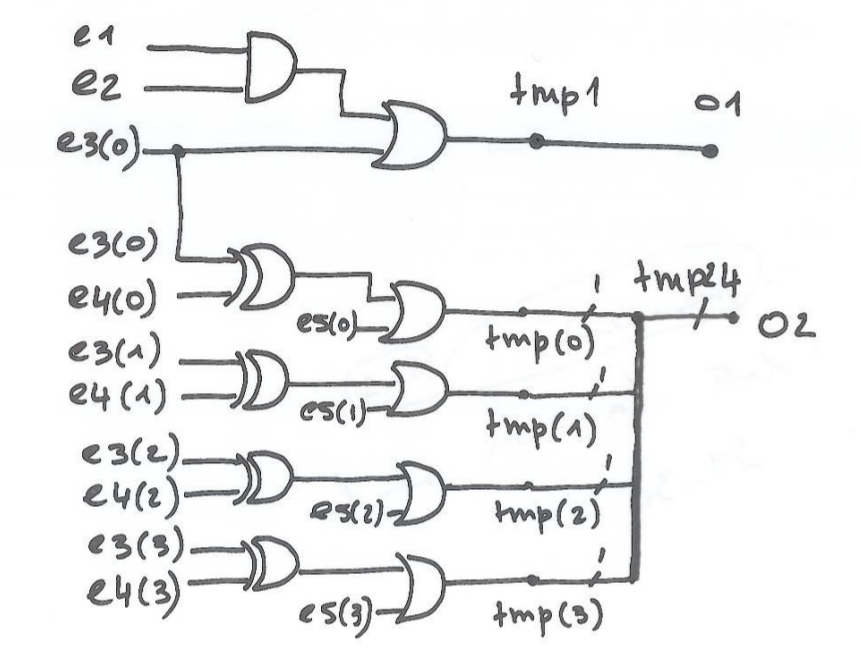 e1
e2
tmp1
o1
e3(0)
e3(0)
e4(0)
e5(0)
tmp(0)
1
tmp24
O2
e3(1)
e4(1)
e5(1)
tmp(1)
1
e3(2)
e4(2)
e5(2)
tmp(2)
1
e3(3)
e4(3)
e5(3)
tmp(3)
1